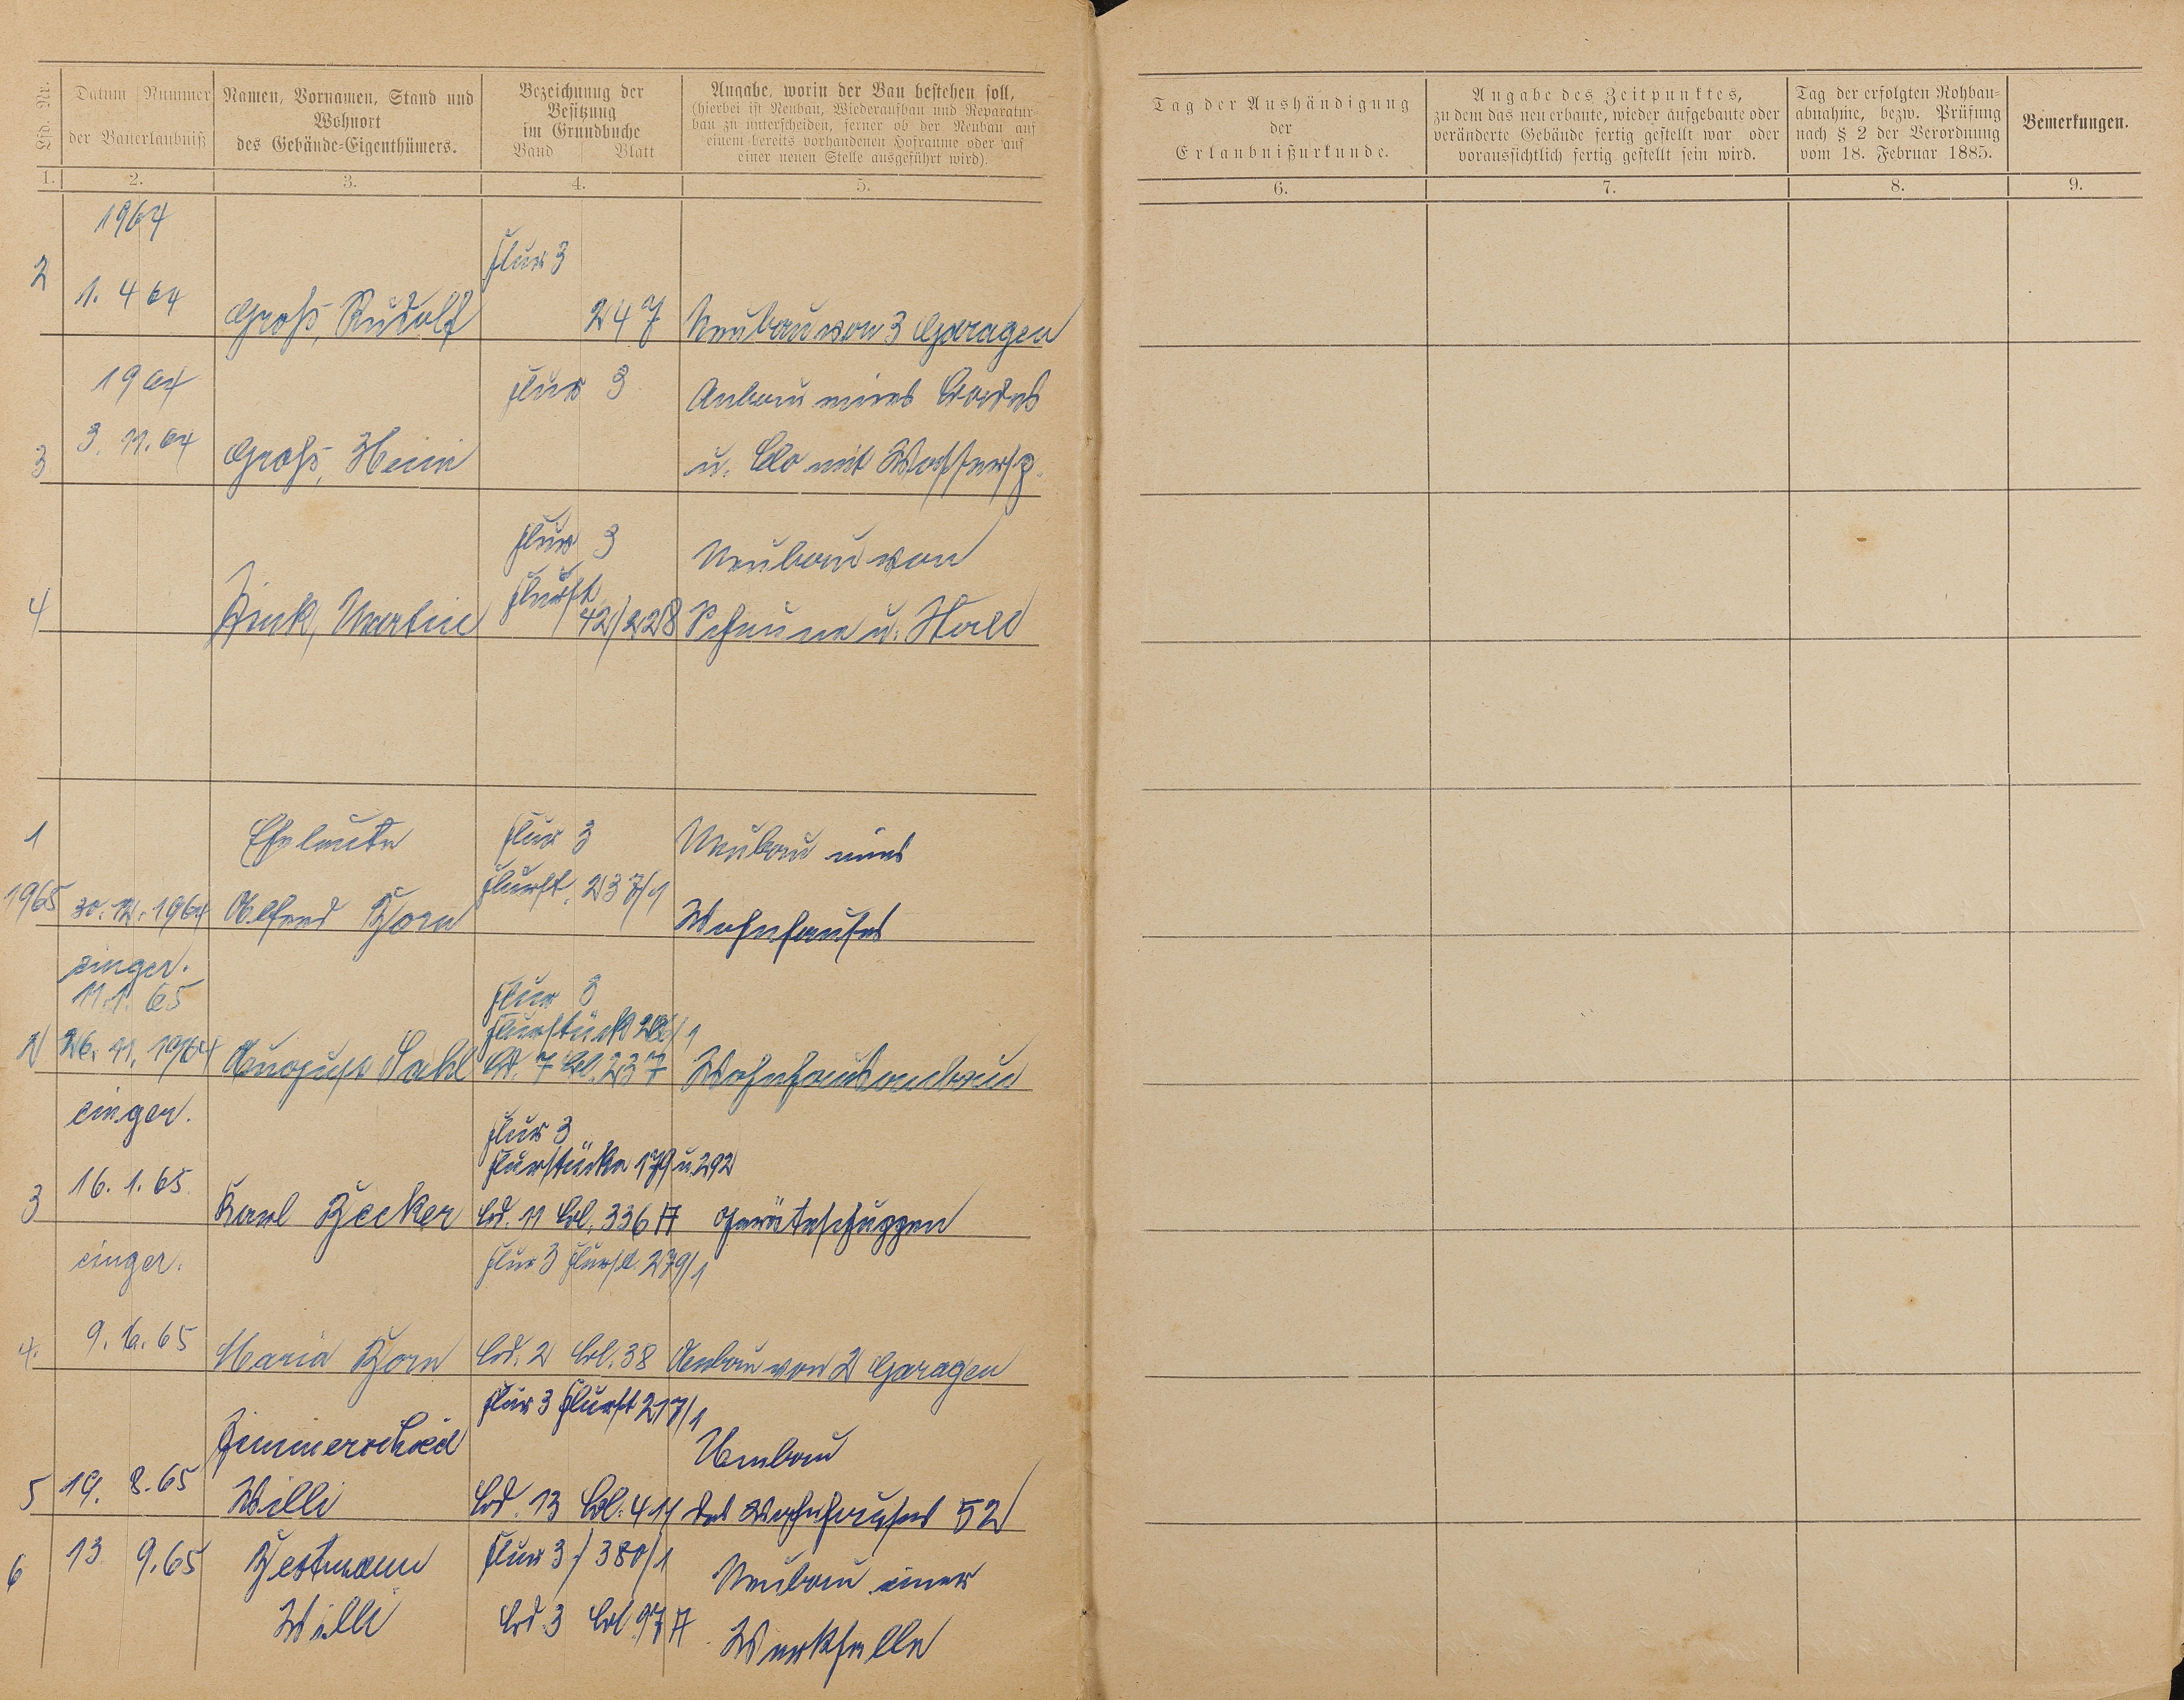 Lfd. Nr.
Datum Nummer
der Bauerlaubniß
Namen, Vornamen, Stand und
Wohnort
des Gebäude=Eigenthümers.
Bezeichnung der
Besitzung
im Grundbuche
Band Blatt
Angabe, worin der Bau bestehen soll,
(hierbei ist Neubau, Wiederaufbau und Reparatur-
bau zu unterscheiden, ferner ob der Neubau auf
einem bereits vorhandenen Hofraume oder auf
einer neuen Stelle ausgeführt wird).
Tag der Aushändigung
der
Erlaubnißurkunde.
Angabe des Zeitpunktes,
zu dem das neu erbaute, wieder aufgebaute oder
veränderte Gebäude fertig gestellt war oder
voraussichtlich fertig gestellt sein wird.
Tag der erfolgten Rohbau-
abnahme, bezw. Prüfung
nach § 2 der Verordnung
vom 18. Februar 1885.
Bemerkungen.
1. 2. 3. 4. 5. 6. 7. 8. 9.
1964
Flur 3
2 1. 4 64 Groß, Rudolf 247 Neubau von 3 Garagen
1964 Flur 3 Anbau eines Bades
3 3. 11. 64 Groß, u. Clo mit Wassersp.
Flur 3 Neubau von
Flurst.
4 Zink, Martin 42/228 Scheune u. Stall
1 Eheleute Flur 3 Neubau eines
Flurst. 237/1
1965 30. 12. 1964 Alfred Horn Wohnhauses
einger.
11. 1. 65 Flur 3
Flurstück /1
2 26. 11. 1964 Bd. 7 Bl. 237 Wohnhausanbau
einger. Flur 3
Flurstücke 179 u. 292
16. 1. 65
3 Karl Becker Bd. 11 Bl. 336 A Geräteschuppen
einger. Flur 3 Flurst. 279/1
4. 9. 6. 65 Maria Horn Bd. 2 Bl. 38 Anbau von 2 Garagen
Flur 3 Flurst 217/1
Zimmerschied Umbau
5 19. 8. 65 Willi Bd. 13 Bl. 414 des Wohnhauses 52
6 13 9. 65 Flur 3 / 380/1 Neubau einer
Willi Bd. 3 Bl. 97 A Werkhalle